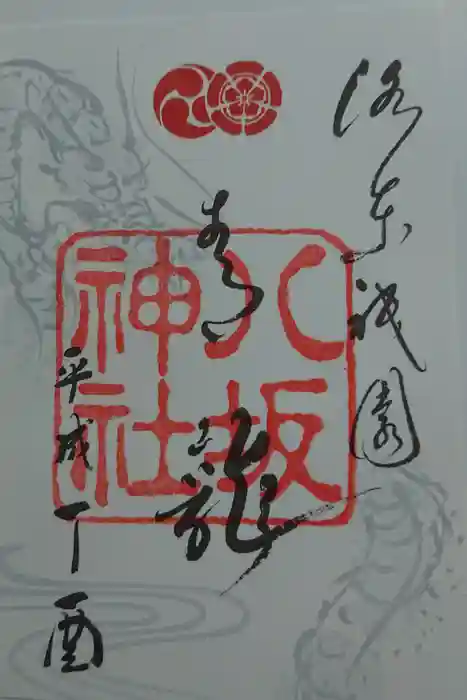 洛東祇園
青龍
八坂神社
平成丁酉